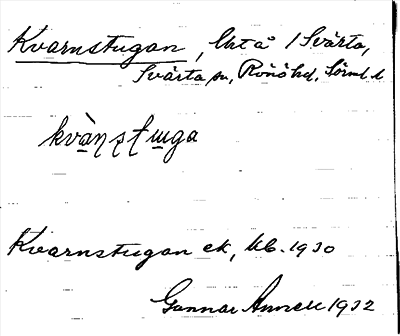 Kvarnstugan, Utå / Svärta,
Svärta sn, Rönö hd, Sörml. l.
kvà̱ɳʂʈɯga
Kvarnstugan ek, kb. 1930
Gunnar Annell 1932